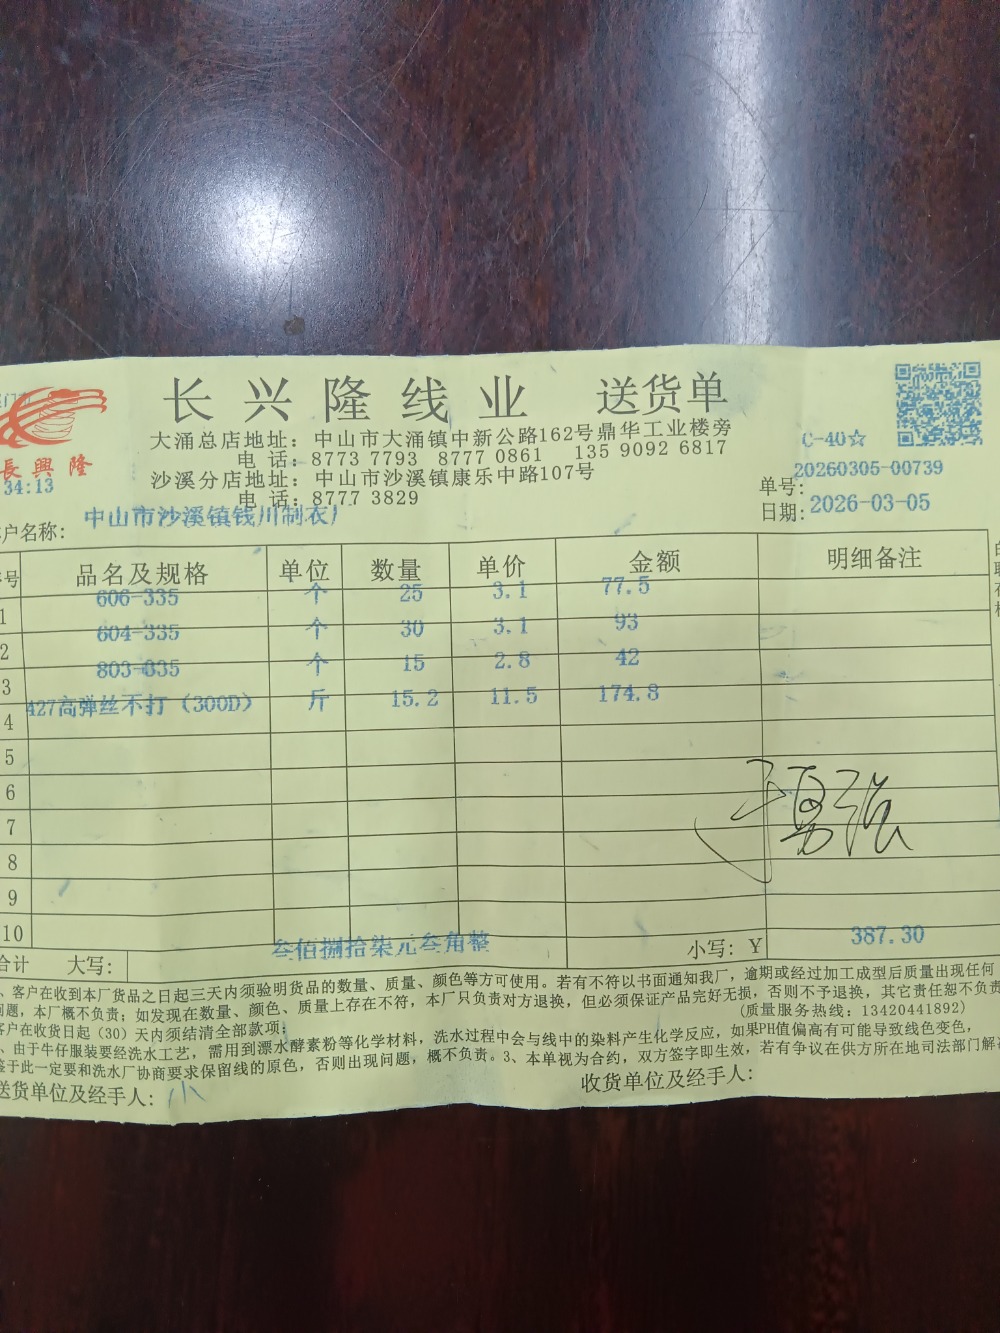 长兴隆线业 送货单
大涌总店地址：中山市大涌镇中新公路162号鼎华工业楼旁
电 话：8773 7793 8777 0861 135 9092 6817
沙溪分店地址：中山市沙溪镇康乐中路107号
电 话：8777 3829
長興隆
34:13
C-40☆
单号：20260305-00739
日期：2026-03-05
户名称：中山市沙溪镇钱川制衣厂
号 品名及规格 单位 数量 单价 金额 明细备注
1 606-335 个 25 3.1 77.5
2 604-335 个 30 3.1 93
3 803-035 个 15 2.8 42
4 427高弹丝不打（300D） 斤 15.2 11.5 174.8
5
6
7
8
9
10
合计 大写：叁佰捌拾柒元叁角整 小写：￥ 387.30
、客户在收到本厂货品之日起三天内须验明货品的数量、质量、颜色等方可使用。若有不符以书面通知我厂，逾期或经过加工成型后质量出现任何
问题，本厂概不负责；如发现在数量、颜色、质量上存在不符，本厂只负责对方退换，但必须保证产品完好无损，否则不予退换，其它责任恕不负责
(质量服务热线：13420441892)
客户在收货日起（30）天内须结清全部款项；
、由于牛仔服装要经洗水工艺，需用到漂水酵素粉等化学材料，洗水过程中会与线中的染料产生化学反应，如果PH值偏高有可能导致线色变色，
鉴于此一定要和洗水厂协商要求保留线的原色，否则出现问题，概不负责。3、本单视为合约，双方签字即生效，若有争议在供方所在地司法部门解
送货单位及经手人：小
收货单位及经手人：